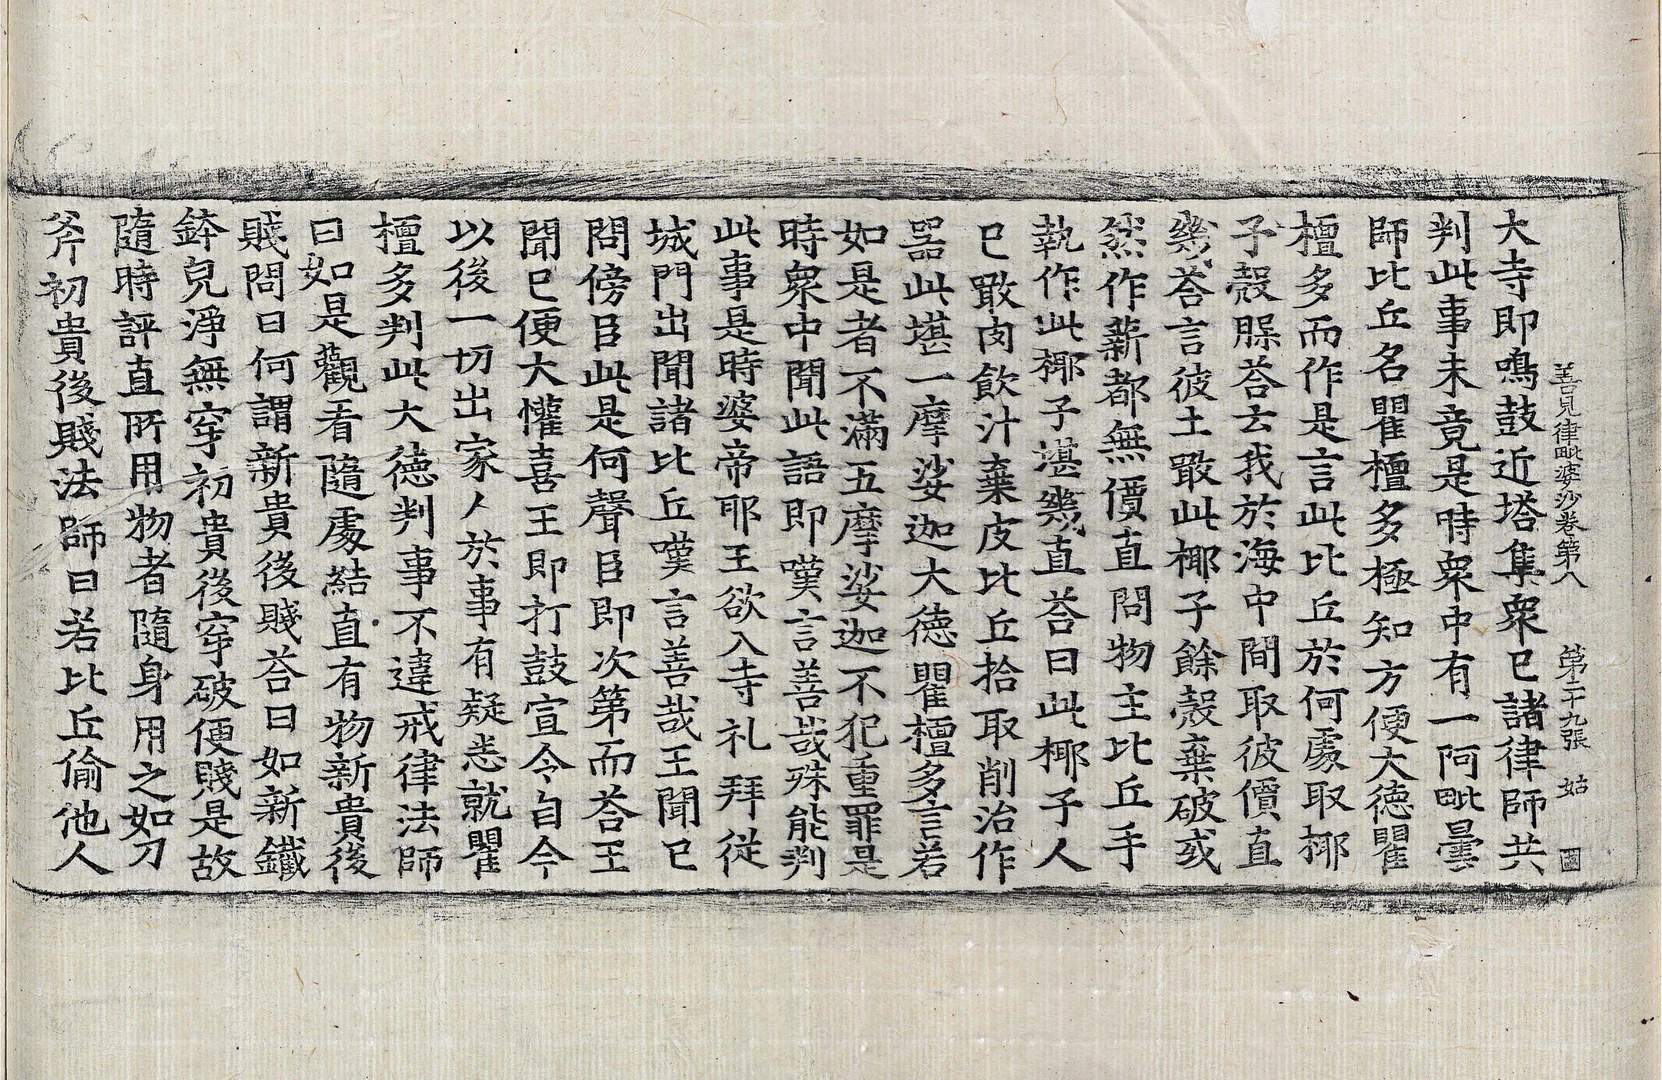 善見律毗婆沙卷第八 第二十九張 姑
大寺即鳴鼓近塔集衆已諸律師共
判此事未竟是時衆中有一阿毗曇
師比丘名瞿檀多極知方便大德瞿
檀多而作是言此比丘於何處取椰
子殼𦠆荅去我於海中間取彼價直
幾荅言彼土噉此椰子餘殼棄破或
然作薪都無價直問物主比丘手
執作此椰子堪幾直荅曰此椰子人
已噉肉飲汁棄皮比丘拾取削治作
器此堪一摩娑迦大德瞿檀多言若
如是者不滿五摩娑迦不犯重罪是
時衆中聞此語即嘆言善哉殊能判
此事是時婆帝耶王欲入寺礼拜從
城門出聞諸比丘嘆言善哉王聞已
問傍臣此是何聲臣即次第而荅王
聞已便大懽喜王即打鼓宣令自今
以後一切出家人於事有疑悉就瞿
檀多判此大德判事不違戒律法師
曰如是觀看隨處結直有物新貴後
賤問曰何謂新貴後賤荅曰如新鐵
鉢皃淨無穿初貴後穿破便賤是故
隨時評直所用物者隨身用之如刀
斧初貴後賤法師曰若比丘偷他人